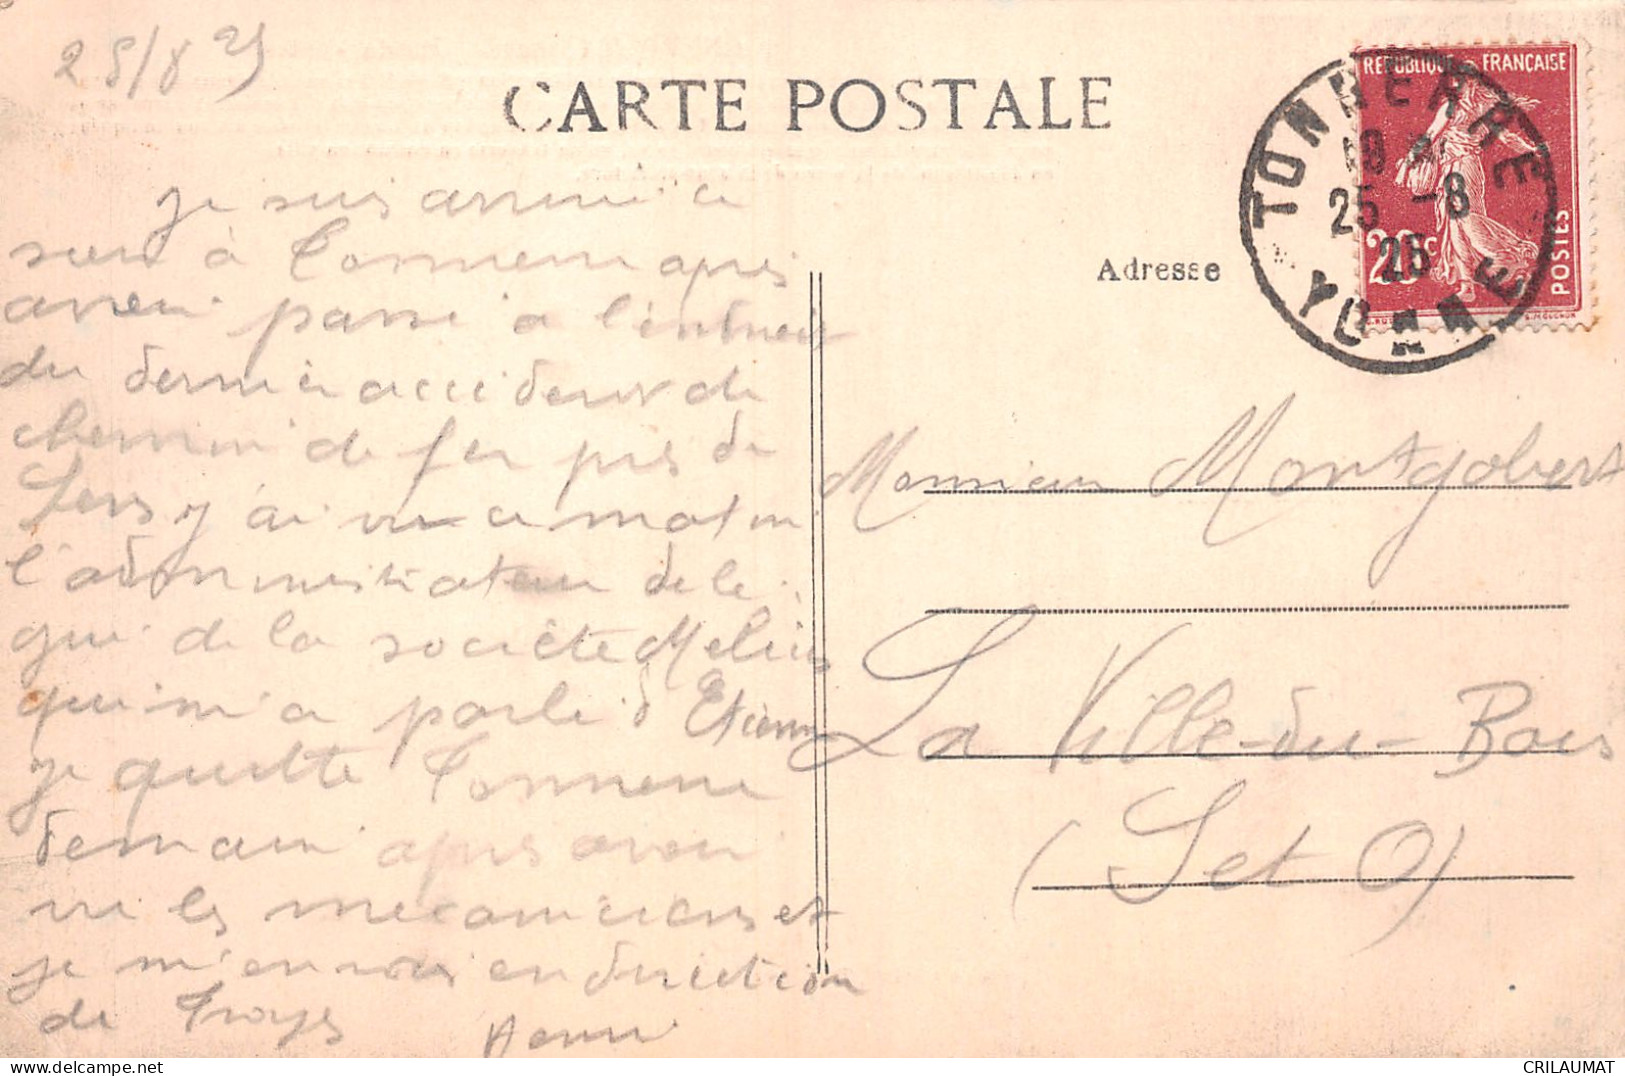 25/8 25
CARTE POSTALE
REPUBLIQUE FRANÇAISE
20c
POSTES
TONNERRE
18
25 -8
25
YONNE
Adresse
je suis arrivé ce
soir à Tonnerre apres
avoir passé a l'entrée
du dernier accident de
chemin de fer près de
Sens, j'ai vu ce matin
l'administrateur
qui de la société
qui m'a parlé d'Etienne
je quitte Tonnerre
demain apres avoir
vu les mecaniciens et
je m'en vais en direction
de Troyes
Henri
Monsieur Montgobert
La Ville-du-Bois
(S et O)
CRILAUMAT